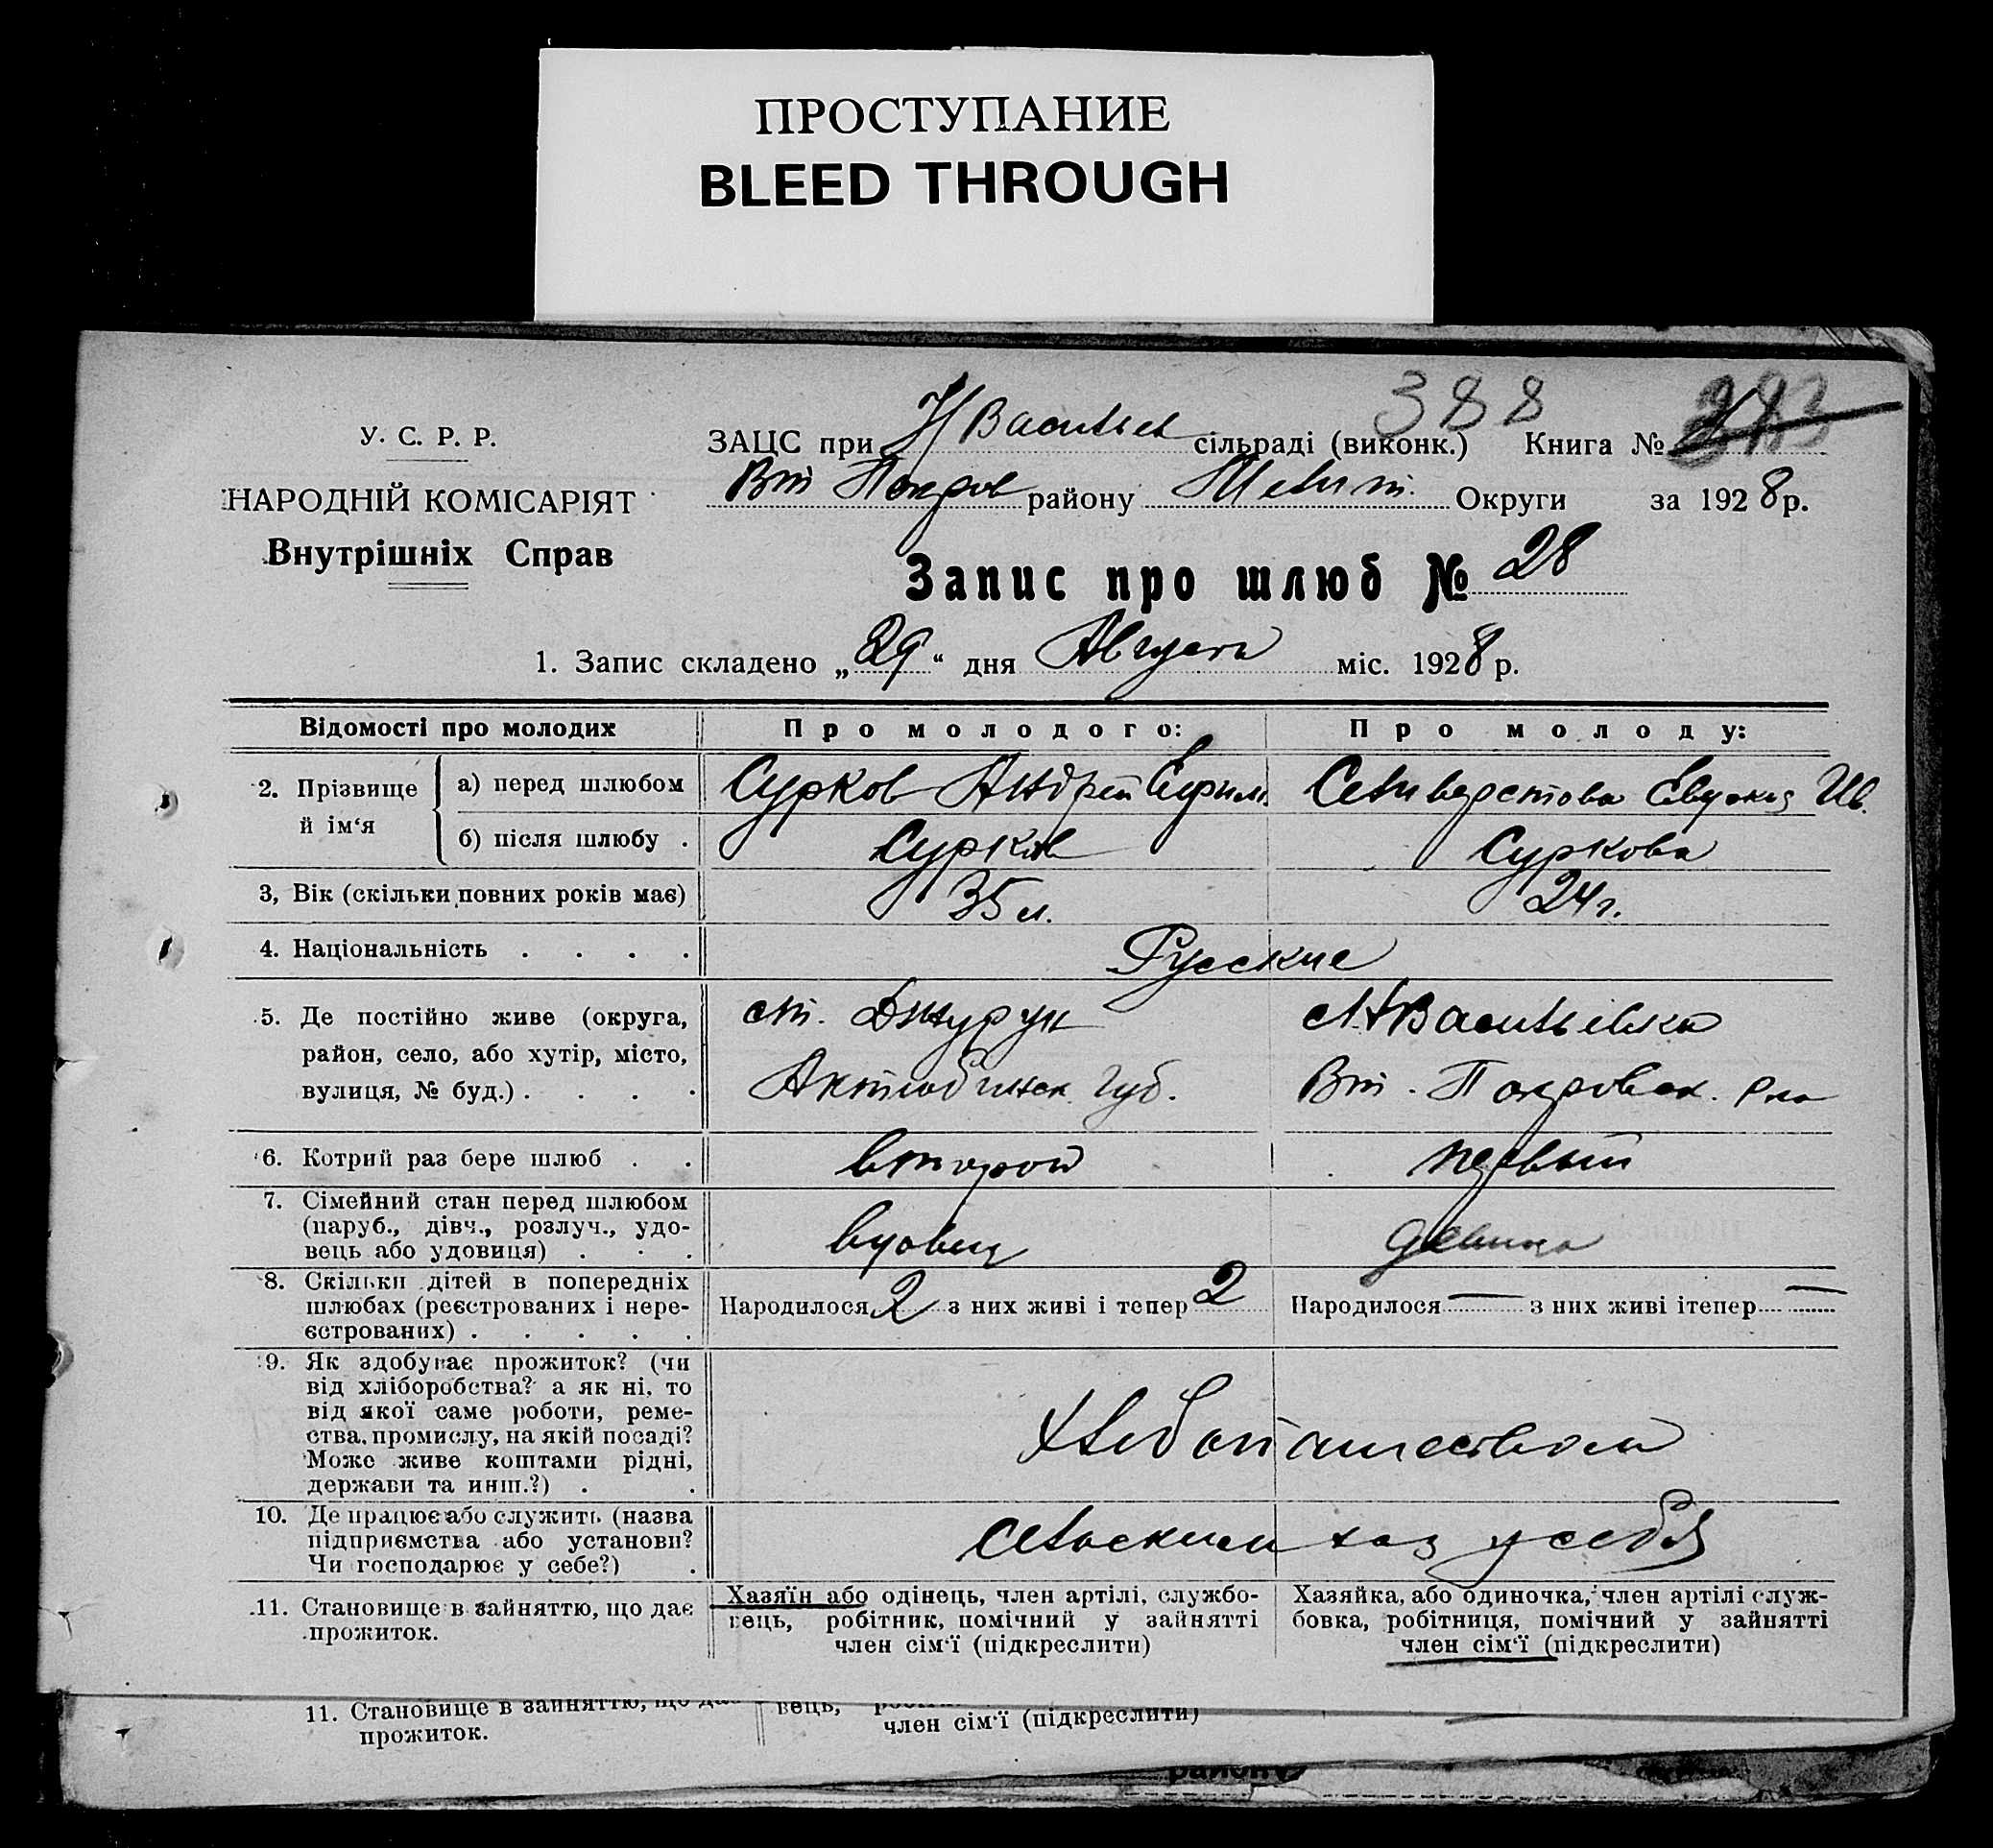 ПРОСТУПАНИЕ
BLEED THROUGH
388
У. С. Р. Р.
НАРОДНІЙ КОМІСАРІЯТ
Внутрішніх Справ
ЗАЦС при Н Васильев сільраді (виконк.) Книга №
Вт Покров району Округи за 1928 р.
Запис про шлюб № 28
1. Запис складено „29“ дня Августа міс. 1928 р.
Відомості про молодих Про молодого: Про молоду:
2. Прізвище й ім‘я
а) перед шлюбом Сурков Андрей Ефим Селиверстова Евдокия Ив.
б) після шлюбу . Сурков Суркова
3, Вік (скільки повних років має) 35 л. 24 г.
4. Національність . . . . Русские
5. Де постійно живе (округа, ст. Джурун Н Васильевка
район, село, або хутір, місто,
вулиця, № буд.) . . . . Актюбинск. Губ. Вт. Покровск. Рна
6. Котрий раз бере шлюб . . второй первый
7. Сімейний стан перед шлюбом
(паруб., дівч., розлуч., удо-
вець або удовиця) . . . вдовец девица
8. Скільки дітей в попередніх
шлюбах (реєстрованих і нере-
єстрованих) . . . . .
Народилося 2 з них живі і тепер 2 Народилося — з них живі ітепер —
9. Як здобуває прожиток? (чи
від хліборобства? а як ні, то
від якої саме роботи, реме-
ства, промислу, на якій посаді?
Може живе коштами рідні,
держави та инш.?) . . Хлебопашеством
10. Де працює або служить (назва
підприємства або установи?
Чи господарює у себе?) . сельским хоз у себя
11. Становище в зайняттю, що дає
прожиток.
Хазяїн або одінець, член артілі, службо-
вець, робітник, помічний у зайнятті
член сім‘ї (підкреслити)
Хазяйка, або одиночка, член артілі служ-
бовка, робітниця, помічний у зайнятті
член сім‘ї (підкреслити)
11. Становище в зайняттю, що дає вець,
прожиток. член сім‘ї (підкреслити)
району